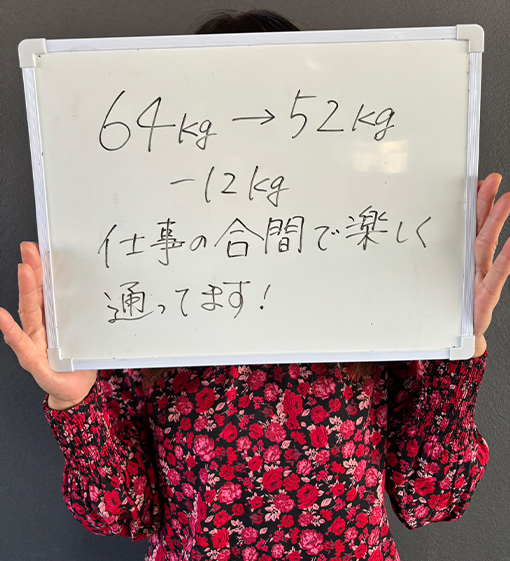 64kg → 52kg
-12kg
仕事の合間で楽しく
通ってます!